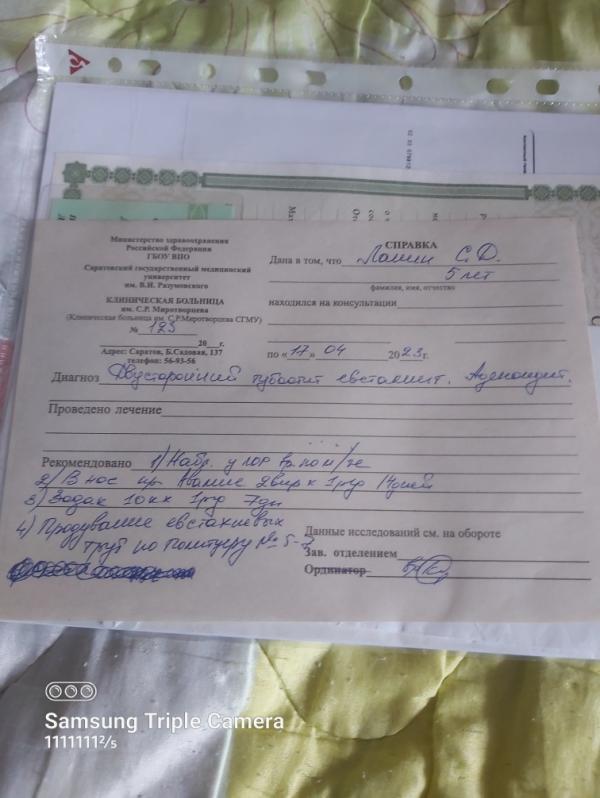 Министерство здравоохранения
Российской Федерации
ГБОУ ВПО
Саратовский государственный медицинский
университет
им. В.И. Разумовского
КЛИНИЧЕСКАЯ БОЛЬНИЦА
им. С.Р. Миротворцева
(Клиническая больница им. С.Р.Миротворцева СГМУ)
№ 123
20 г.
Адрес: Саратов, Б.Садовая, 137
телефон: 56-93-56
СПРАВКА
Дана в том, что С.Д.
5 лет
фамилия, имя, отчество
находился на консультации
по «17» 04 2023г.
Диагноз Двусторонний тубоотит евстахиит. Аденоидит.
Проведено лечение
Рекомендовано 1) Набл. у лор вр. по м/ж
2) В нос Авамис 2 впр х 1 р/д 14 дней
3) Зодак 10 кк 1 р/д 7 дн
4) Продувание евстахиевых
труб по Политцеру № 5-7
Данные исследований см. на обороте
Зав. отделением
Ординатор
Samsung Triple Camera
1111111²/₅